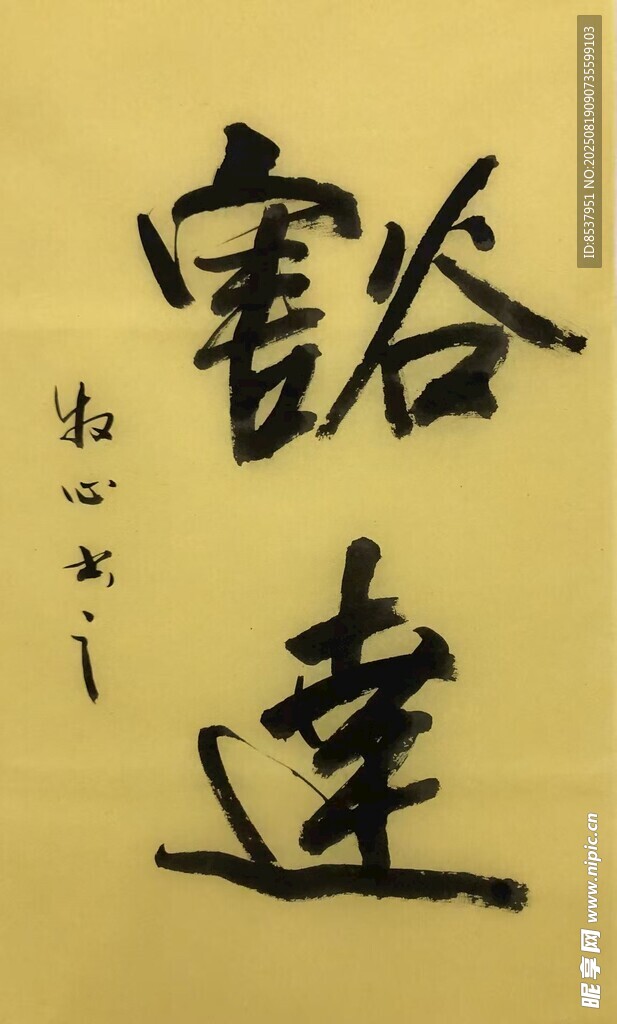 豁達
牧心书之
ID:8537951 NO:20250819090735599103
昵享网 www.nipic.cn